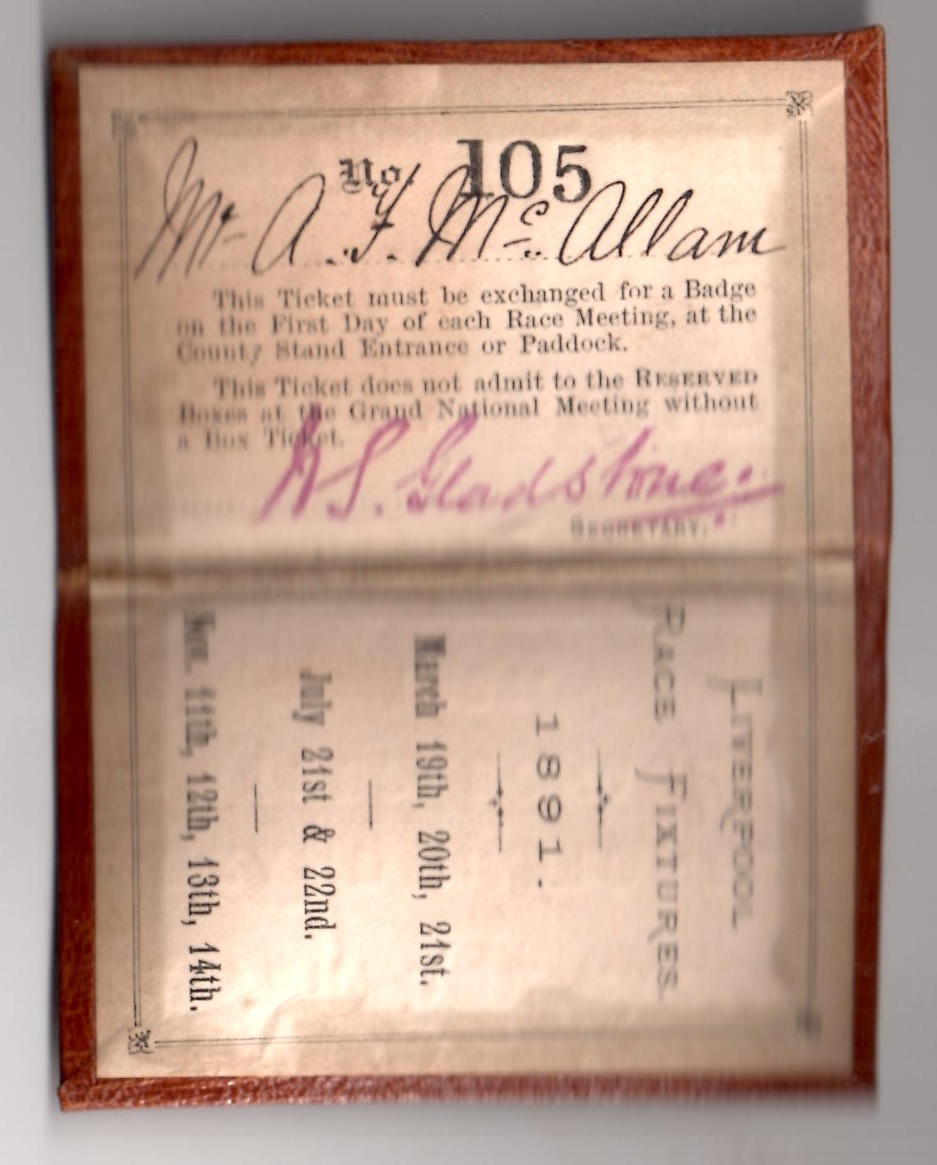 No. 105
Mr A. F. Mc Allam
This Ticket must be exchanged for a Badge
on the First Day of each Race Meeting, at the
County Stand Entrance or Paddock.
This Ticket does not admit to the RESERVED
Boxes at the Grand National Meeting without
a Box Ticket.
W S. Gladstone.
SECRETARY.
LIVERPOOL
RACE FIXTURES.
1891.
March 19th, 20th, 21st.
July 21st & 22nd.
Nov. 11th, 12th, 13th, 14th.